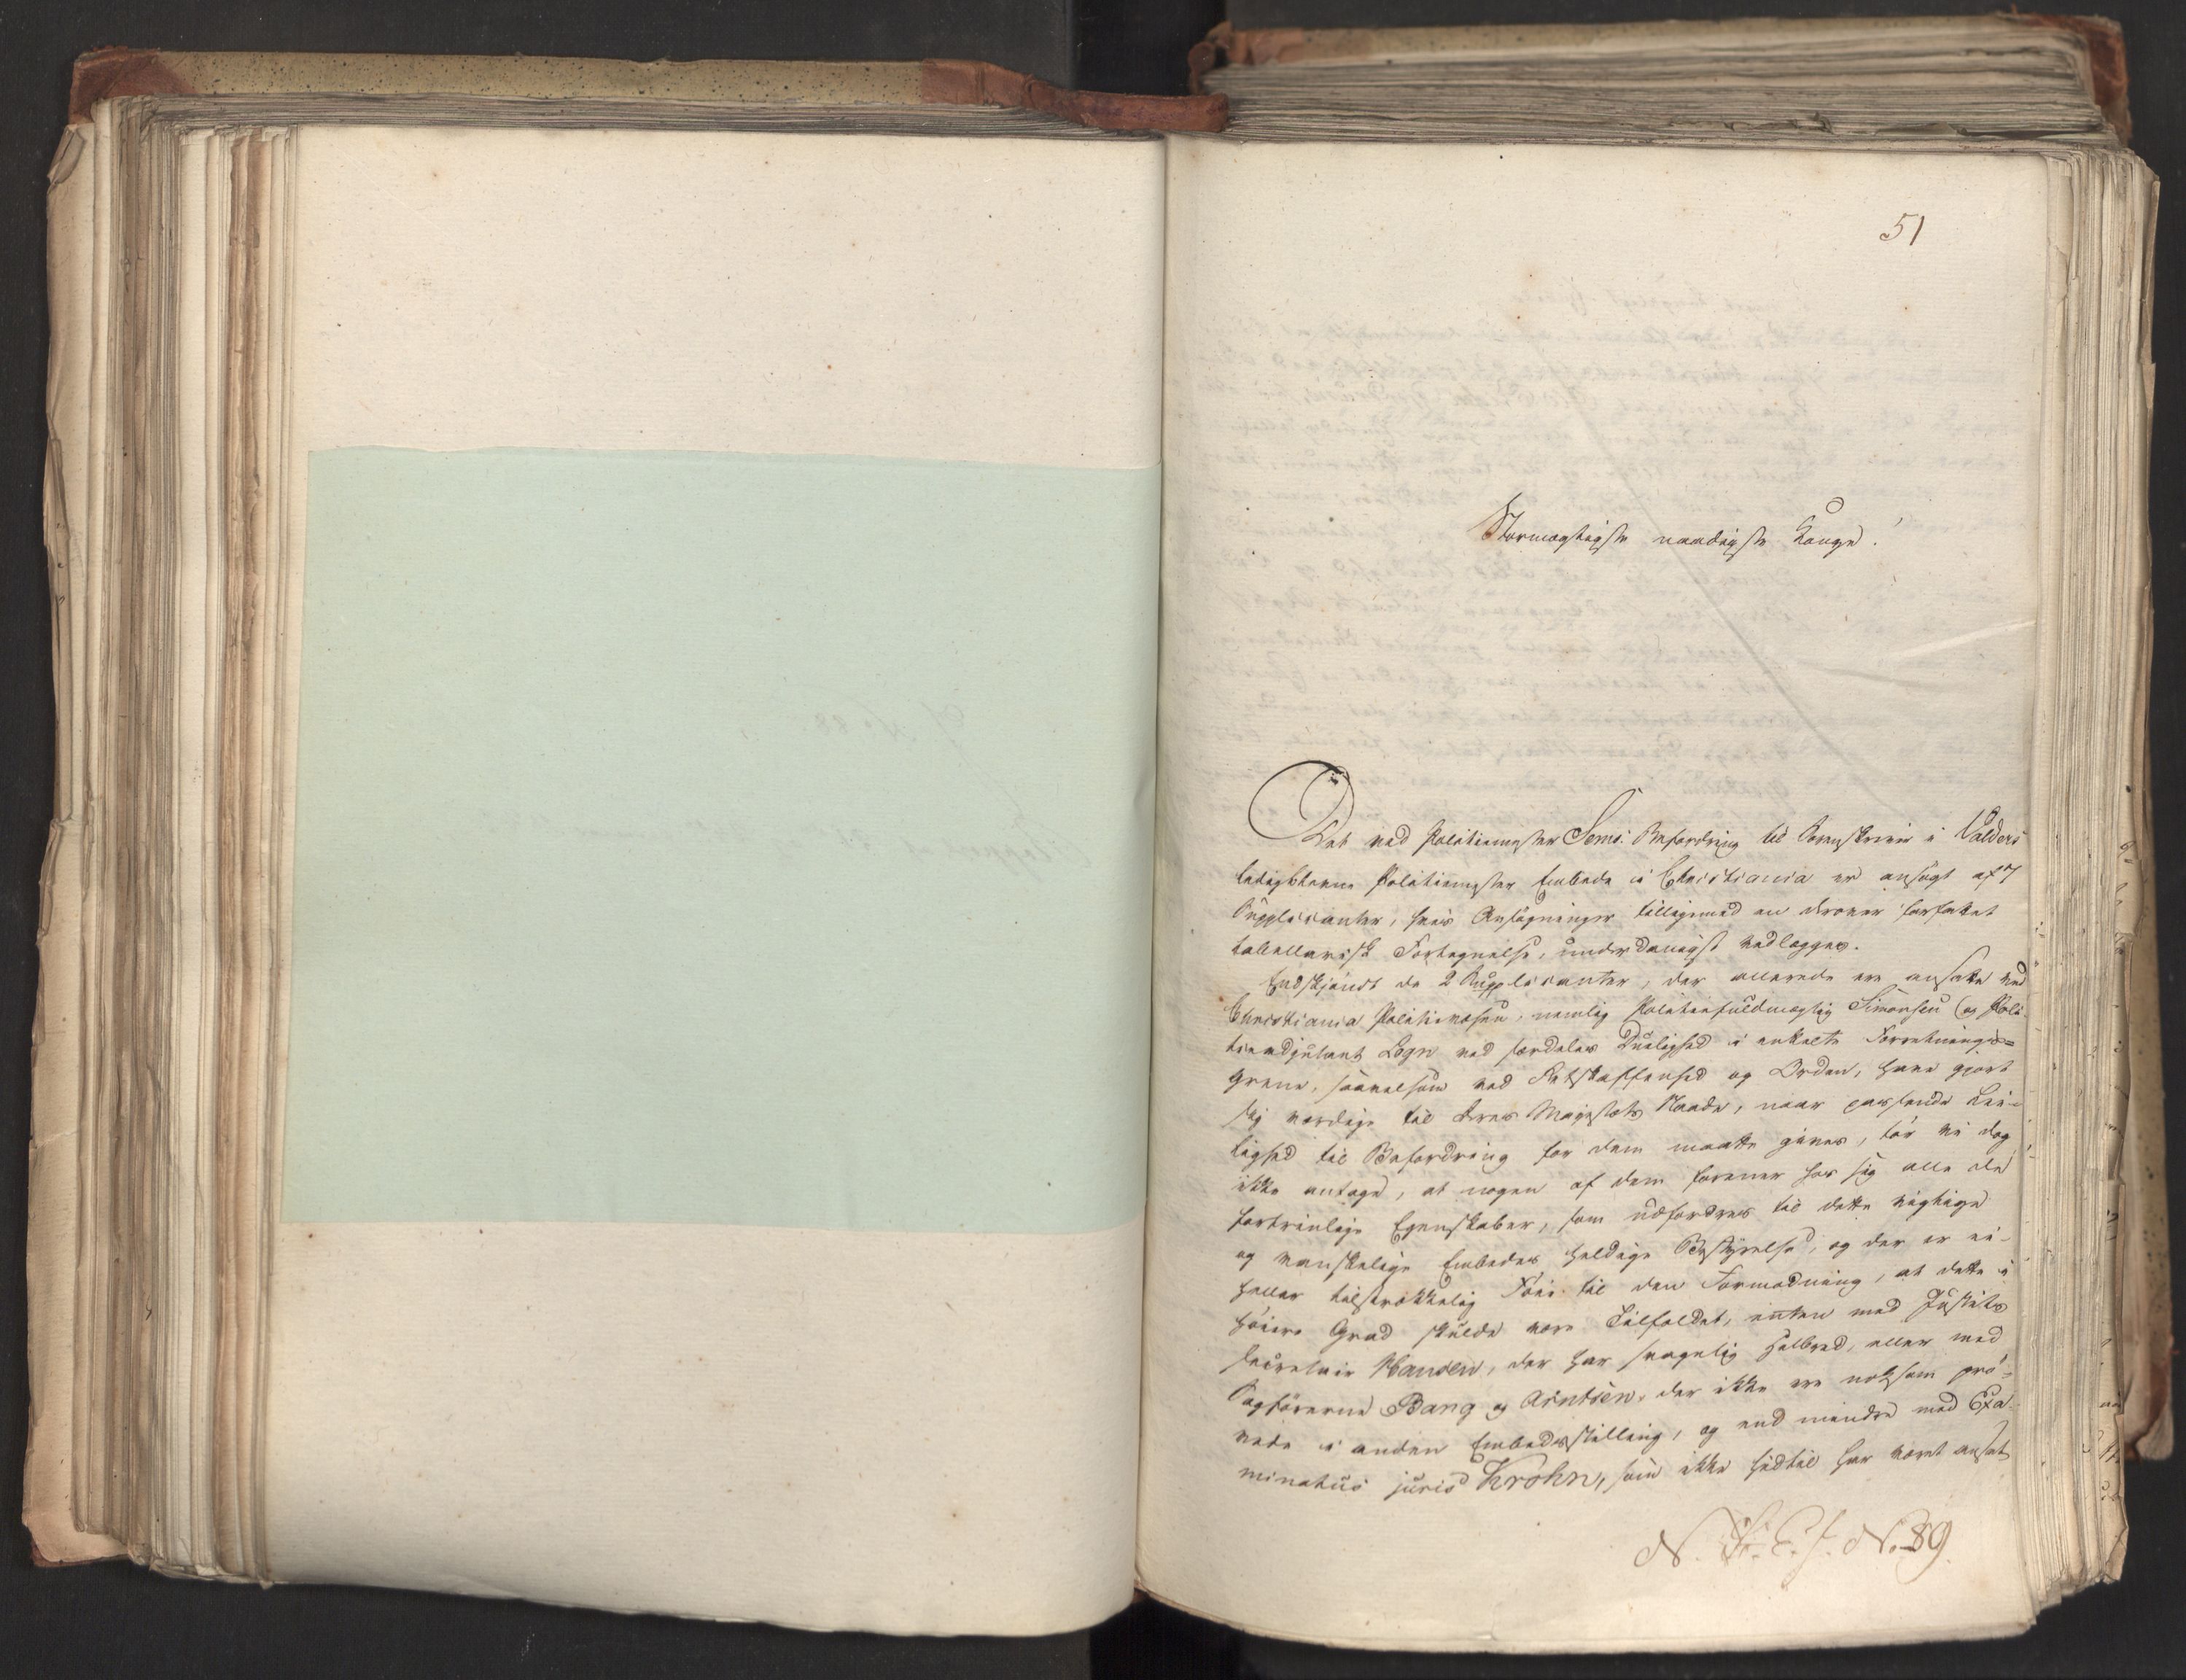 51
Stormægtigste naadigste Konge!
Det ved Politiemester Sems Befordring til Sorenskriver i Valders
ledigblevne Politiemester Embede i Christiania er ansøgt af 7
Supplicanter, hvis Ansøgninger tilligemed en derover forfattet
tabellarisk Fortegnelse, underdanigst vedlægges.
Endskjøndt de 2 Supplicanter, der allerede ere ansatte ved
Christiania Politievæsen, nemlig Politiefuldmægtig Simonsen og Poli-
tieadjutant Løgn ved særdeles Duelighed i enkelte Forretnings-
grene, saavelsom ved Retskaffenhed og Orden, have gjort
sig værdige til Deres Majestæts Naade, naar passende Lei-
lighed til Befordring for dem maatte gives, tør vi dog
ikke antage, at nogen af dem forener hos sig alle de
fortrinlige Egenskaber, som udfordres til dette vigtige
og vanskelige Embedes heldige Bestyrelse, og der er ei-
heller tilstrækkelig Föie til den Formodning, at dette i
høiere Grad skulde være Tilfældet, enten med Justits
Secretair Hansen, der har svagelig Helbred, eller med
Sagførerne Bang og Arntsen, der ikke ere noksom prø-
vede i anden Embedsstilling, og end mindre med Exa-
minatus juris Krohn, som ikke hidtil har været ansat
No. 89.